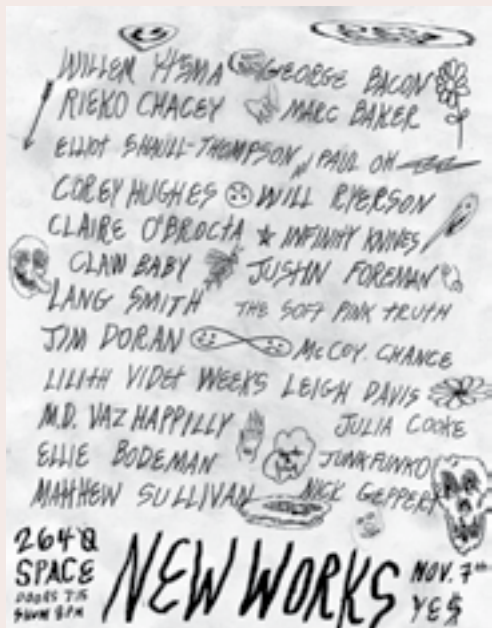 WILLEM YTSMA GEORGE BACON
RIEKO CHACEY MARC BAKER
ELLIOT SHAULL-THOMPSON, PAUL OH
COREY HUGHES WILL RYERSON
CLAIRE O'BROCTA INFINITY KNIVES
CLAW BABY JUSTIN FOREMAN
LANG SMITH THE SOFT PINK TRUTH
JIM DORAN McCOY CHANCE
LILITH VIDET WEEKS LEIGH DAVIS
M.D. VAZ HAPPILLY JULIA COOKE
ELLIE BODEMAN JUNKFUNKO
MATTHEW SULLIVAN NICK GEPPERT
2640
SPACE
DOORS 7:15
SHOW 8PM
NEW WORKS
NOV. 7th
YES